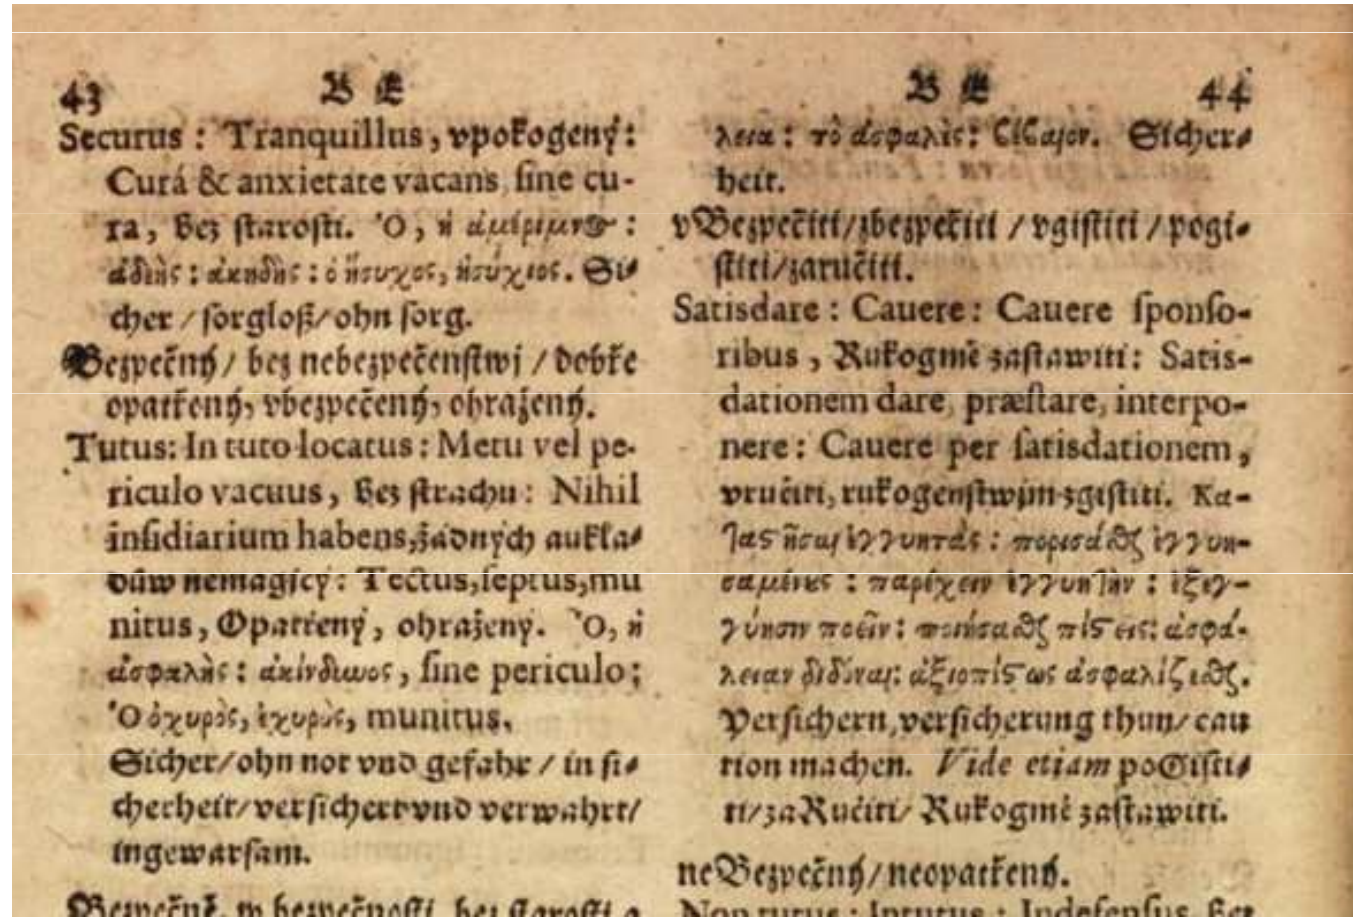 43 B E
Securus : Tranquillus, vpokogený:
Curá & anxietate vacans, ſine cu-
ra, Bez ſtaroſti. Ὁ, ἡ ἀμέριμνος :
ἀδεὴς : ἀκηδὴς : ὁ ἥσυχος, ἡσύχιος. Si⸗
cher / ſorgloß/ ohn ſorg.
Bezpečný / bez nebezpečenſtwj / dobře
opatřený, vbezpečený, ohražený.
Tutus: In tuto locatus : Metu vel pe-
riculo vacuus, Bez ſtrachu : Nihil
inſidiarium habens, žádných aukla⸗
důw nemagjcý : Tectus, ſeptus, mu
nitus, Opatřený, ohražený. Ὁ, ἡ
ἀσφαλὴς : ἀκίνδυνος, ſine periculo ;
Ὁ ὀχυρὸς, ἐχυρὸς, munitus.
Sicher/ ohn not vnd gefahr / in ſi⸗
cherheit/ verſichert vnd verwahrt/
ingewarſam.
Bezpečně, w bezpečnoſti, bez ſtaroſti a
B E 44
λεια : τὸ ἀσφαλὲς : βέβαιον. Sicher⸗
heit.
vBezpečiti/ zbezpečiti / vgiſtiti / pogi⸗
ſtiti/ zaručiti.
Satisdare : Cauere : Cauere ſponſo-
ribus, Rukogmě zaſtawiti : Satis-
dationem dare, præſtare, interpo-
nere : Cauere per ſatisdationem,
vručiti, rukogenſtwjm zgiſtiti. Κα-
ταστῆσαι ἐγγυητάς : πορίσασθαι ἐγγυη-
σαμένους : παρέχειν ἐγγυητὴν : ἐξεγ-
γύησιν ποιεῖν : ποιήσασθαι πίστεις : ἀσφά-
λειαν διδόναι : ἀξιοπίστως ἀσφαλίζεσθαι.
Verſichern, verſicherung thun/ cau
tion machen. Vide etiam poGiſti⸗
ti/ zaRučiti/ Rukogmě zaſtawiti.
neBezpečný / neopatřený.
Non tutus : Intutus : Indefenſus, Bez